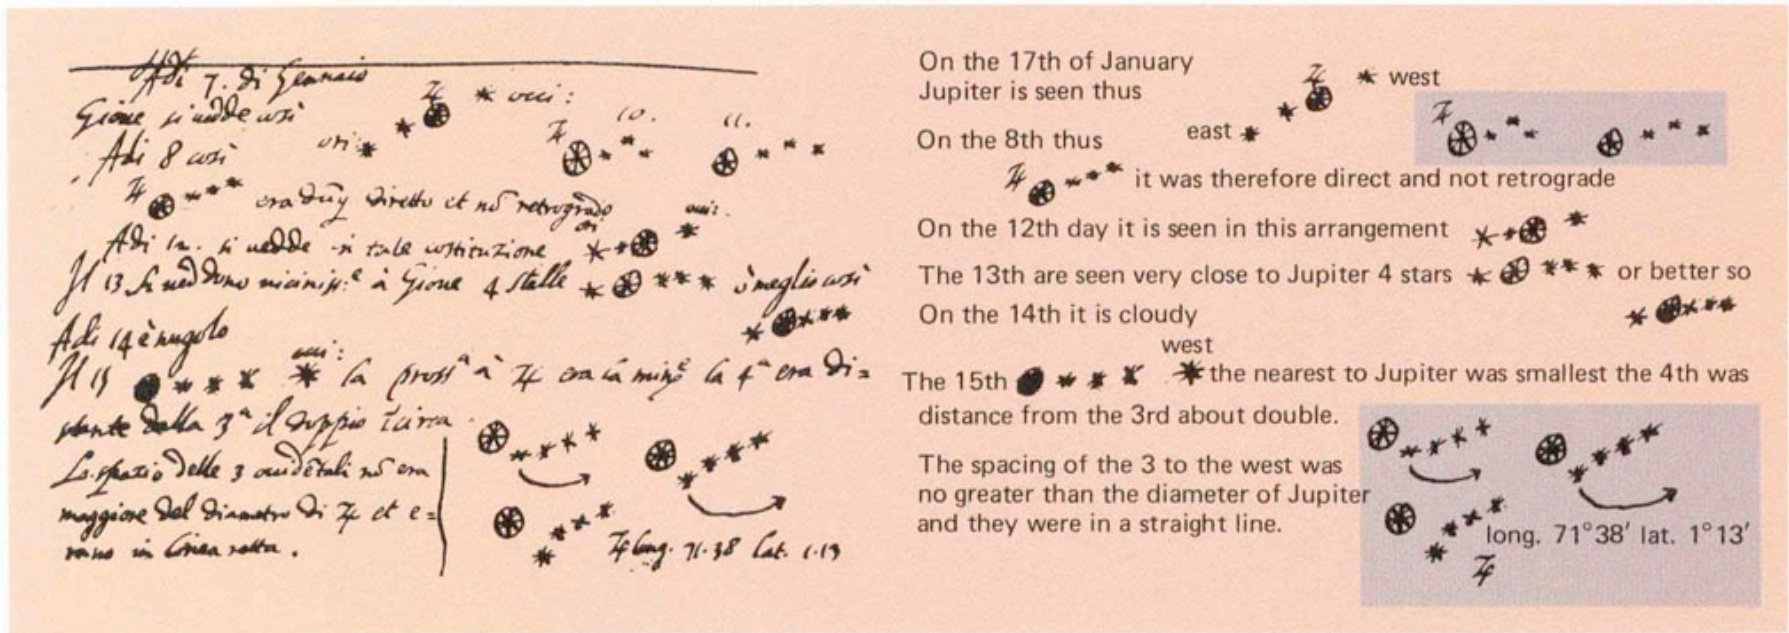 Adi 7. di Gennaio
Gione si uedde così
♃ occi:
ori
10. 11.
♃
Adi 8 così
♃ era dūq diretto et nō retrogrado
Adi 12. si uedde in tale costituzione
ori occi:
Il 13 si ueddono vicinis.e à Gione 4 stelle ò meglio così
Adi 14 è nugolo
occi:
Il 15 la pross.a à ♃ era la min.e la 4.a era di=
stante dalla 3.a il doppio circa
Lo spazio delle 3 ouidētali nō era
maggiore del diametro di ♃ et e=
rano in linea retta.
♃ long. 71.38 lat. 1.13
On the 17th of January
Jupiter is seen thus
♃ west
east
♃
On the 8th thus
♃ it was therefore direct and not retrograde
On the 12th day it is seen in this arrangement
The 13th are seen very close to Jupiter 4 stars or better so
On the 14th it is cloudy
west
The 15th the nearest to Jupiter was smallest the 4th was
distance from the 3rd about double.
The spacing of the 3 to the west was
no greater than the diameter of Jupiter
and they were in a straight line.
long. 71°38′ lat. 1°13′
♃